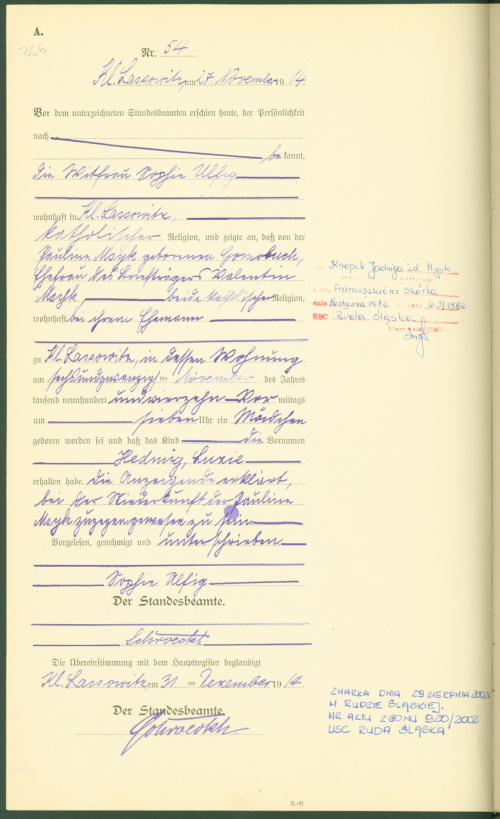 A.
Nr. 54
Kl. Lassowitz, am 27 November 1914.
Vor dem unterzeichneten Standesbeamten erschien heute, der Persönlichkeit
nach
bekannt,
die Witfrau Sophie Ulfig
wohnhaft in Kl. Lassowitz,
katholischer Religion, und zeigte an, daß von der
Pauline geborenen
Ehefrau des Valentin
beide katholischer Religion,
wohnhaft bei ihrem Ehemann
zu Kl. Lassowitz, in dessen Wohnung
am sechsundzwanzigsten November des Jahres
tausend neunhundert undvierzehn Vormittags
um sieben Uhr ein Mädchen
geboren worden sei und daß das Kind die Vornamen
Hedwig, Luzie
erhalten habe. Die Anzeigende erklärt,
bei der Niederkunft der Pauline
zugegen gewesen zu sein
Vorgelesen, genehmigt und unterschrieben
Sophie Ulfig
Der Standesbeamte.
Die Übereinstimmung mit dem Hauptregister beglaubigt
Kl. Lassowitz, am 31 ten Dezember 1914.
Der Standesbeamte.
Knopik Jadwiga
Franciszkiem
1982 63/1982
USC Ruda Śląska
ZMARŁA DNIA 29 SIERPNIA 2002
W RUDZIE ŚLĄSKIEJ.
NR AKTU ZGONU 920/2002
USC RUDA ŚLĄSKA